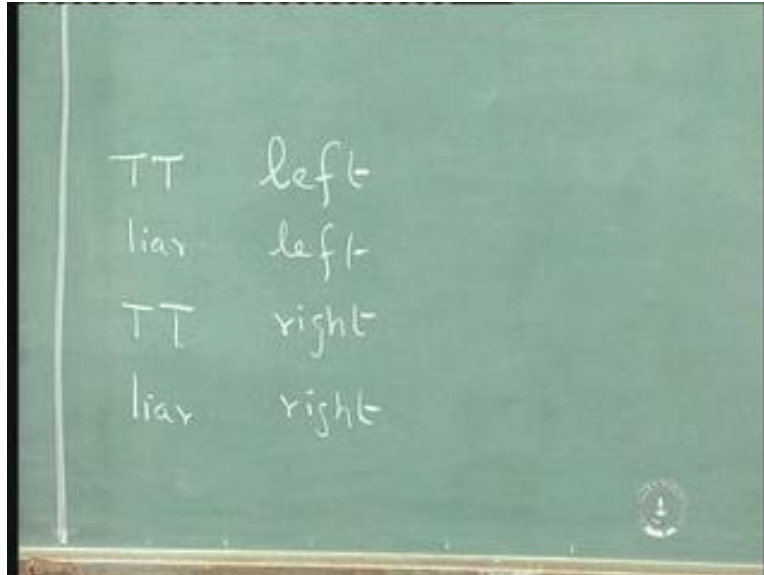 TT left
liar left
TT right
liar right